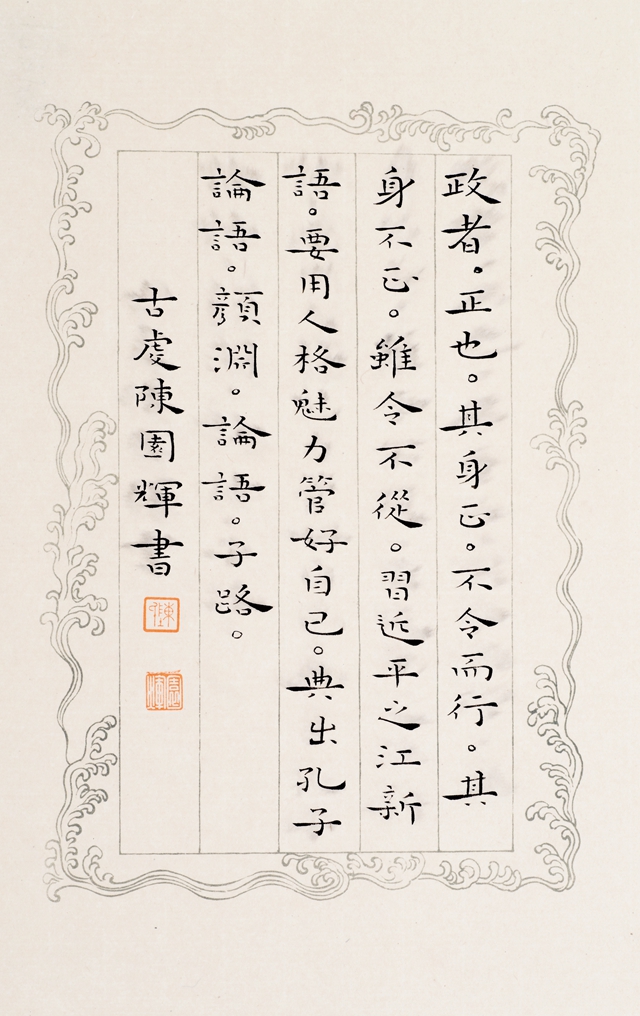 政者。正也。其身正。不令而行。其
身不正。雖令不從。習近平之江新
語。要用人格魅力管好自己。典出孔子
論語。顏淵。論語。子路。
古虔陳園輝書